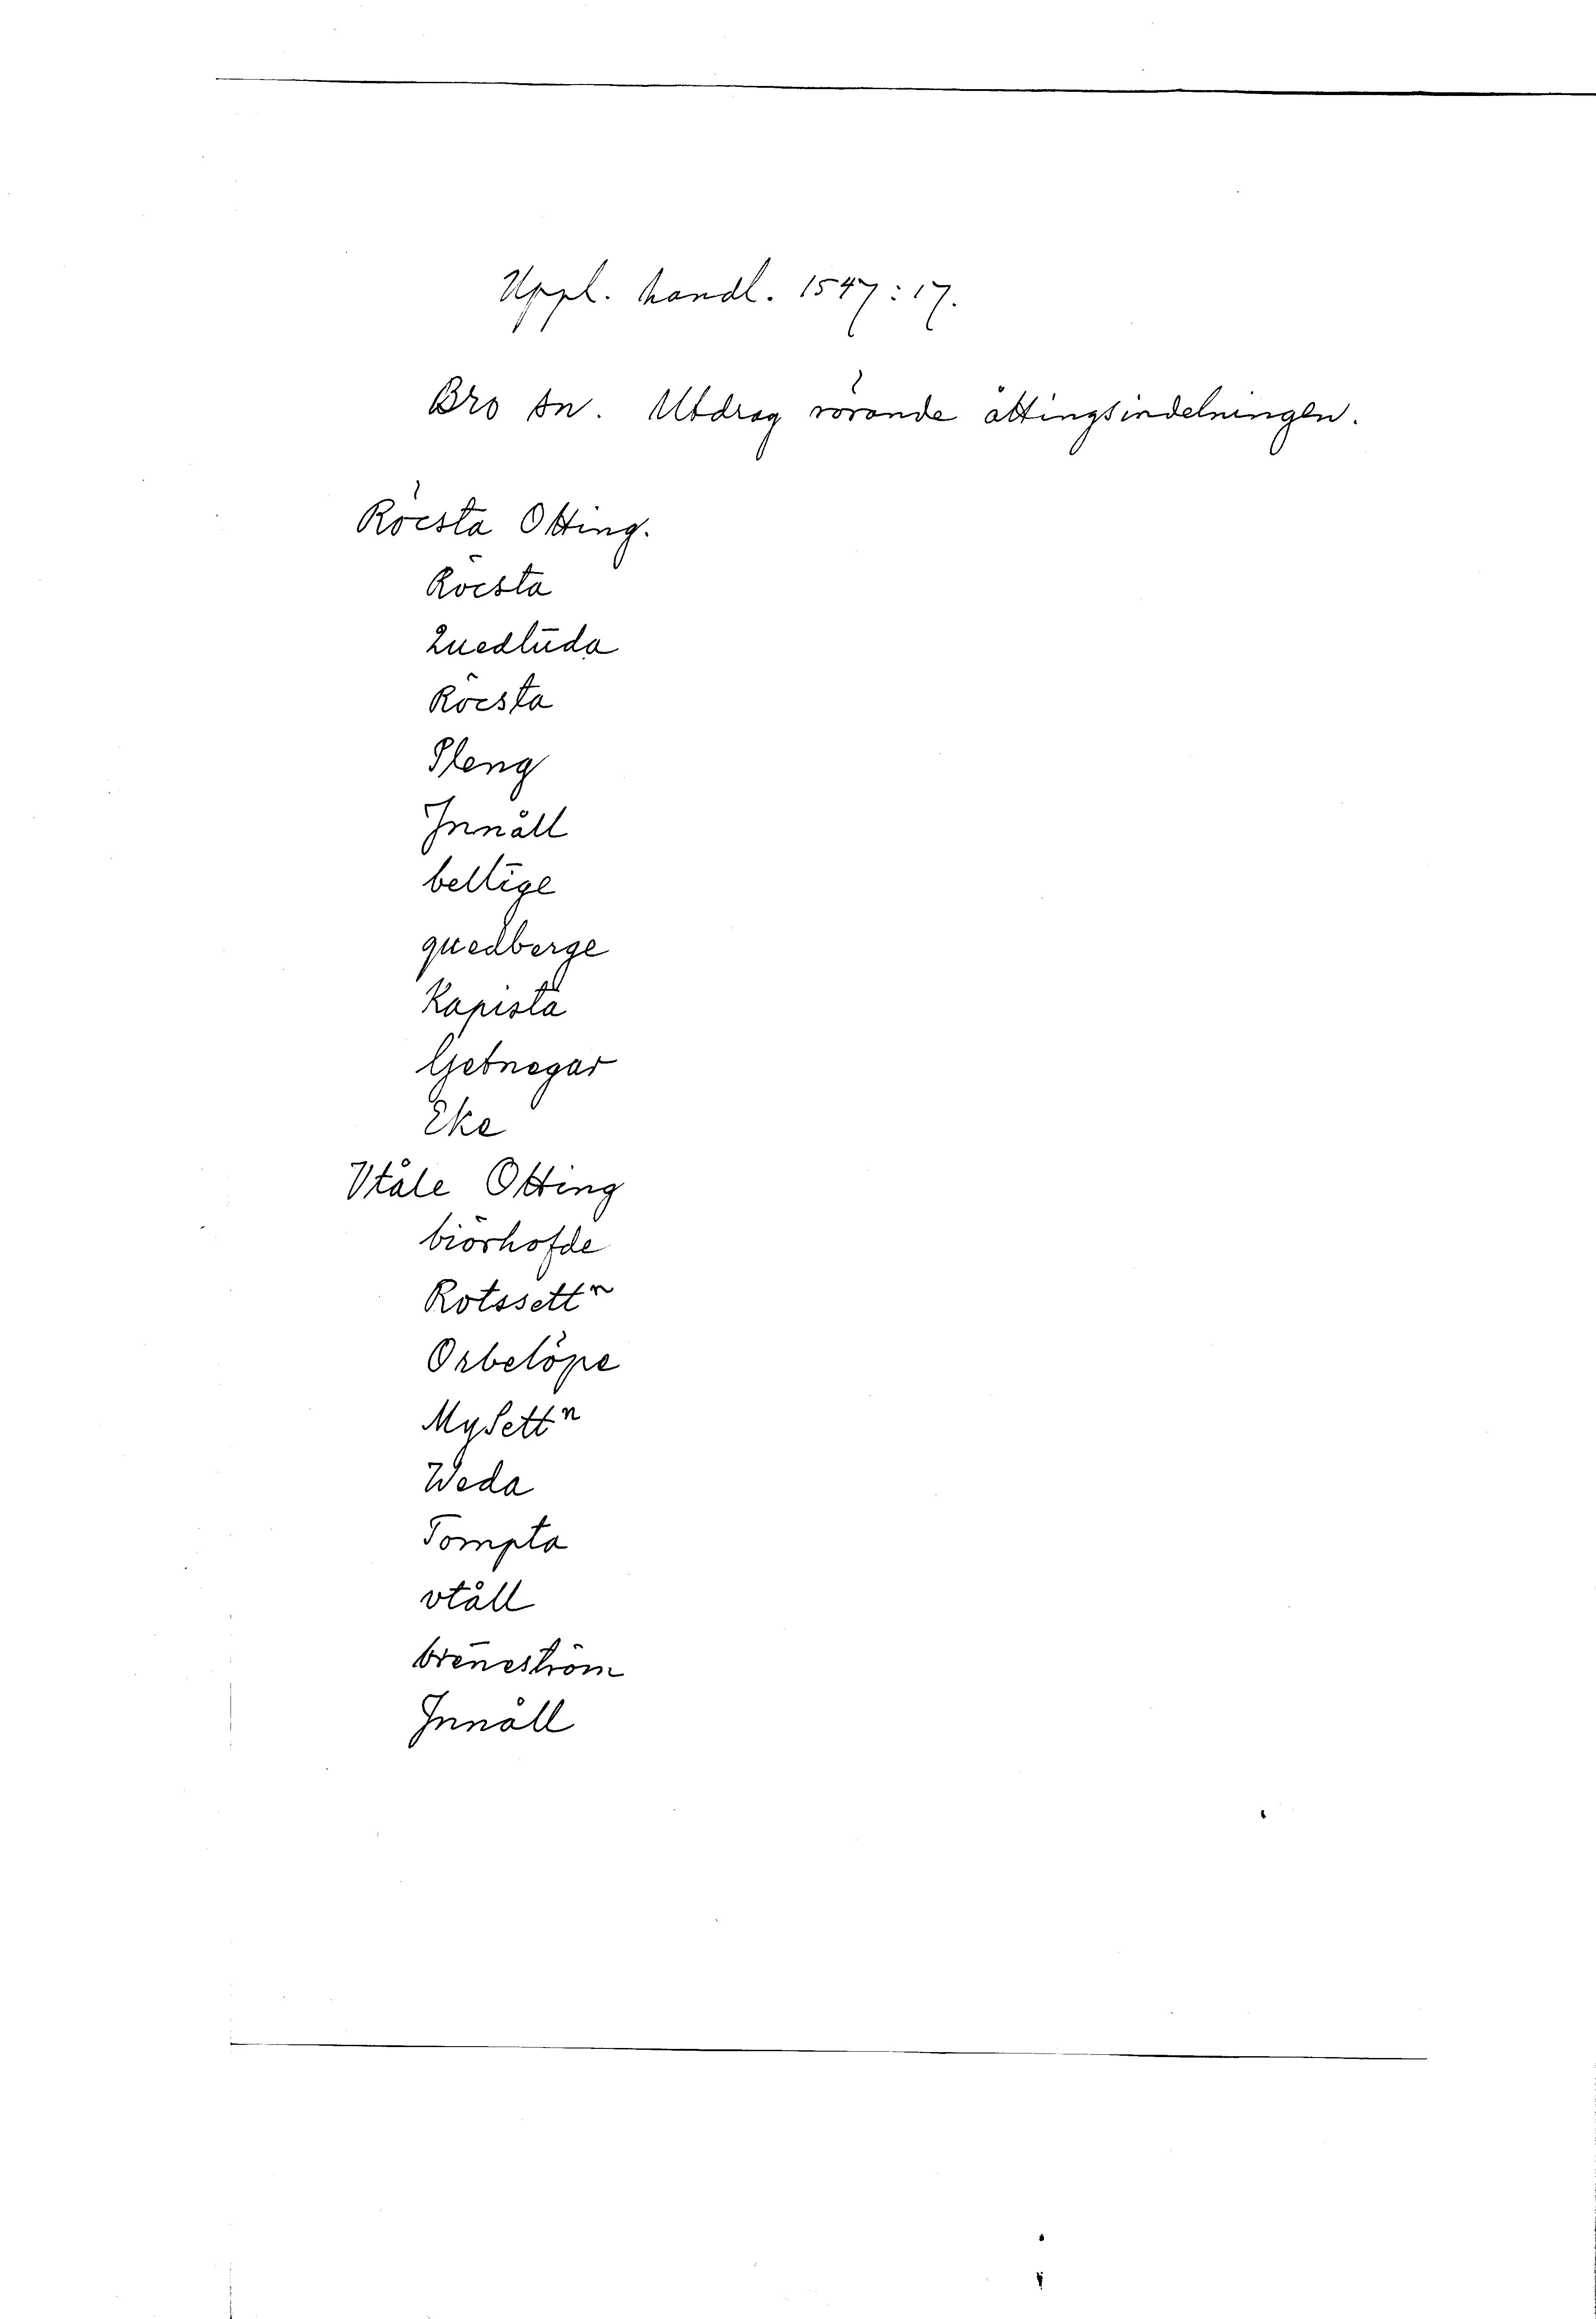 Uppl. handl. 1547:17.
Bro sn. Utdrag rörande åttingsindelningen.
Röcsta Otting.
Röcsta
Quedlūda
Röcsta
Pleng
Jnnåll
beltīge
quedberge
Kapista
Getnegar
Eke
Vtåle Otting
biörhofde
Rotssettⁿ
Orbelöpe
MySettⁿ
Weda
Tompta
vtåll
brēneström
Jnnåll